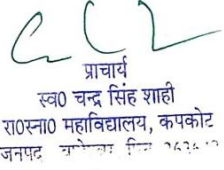 प्राचार्य
स्व0 चन्द्र सिंह शाही
रा0स्ना0 महाविद्यालय, कपकोट
जनपद